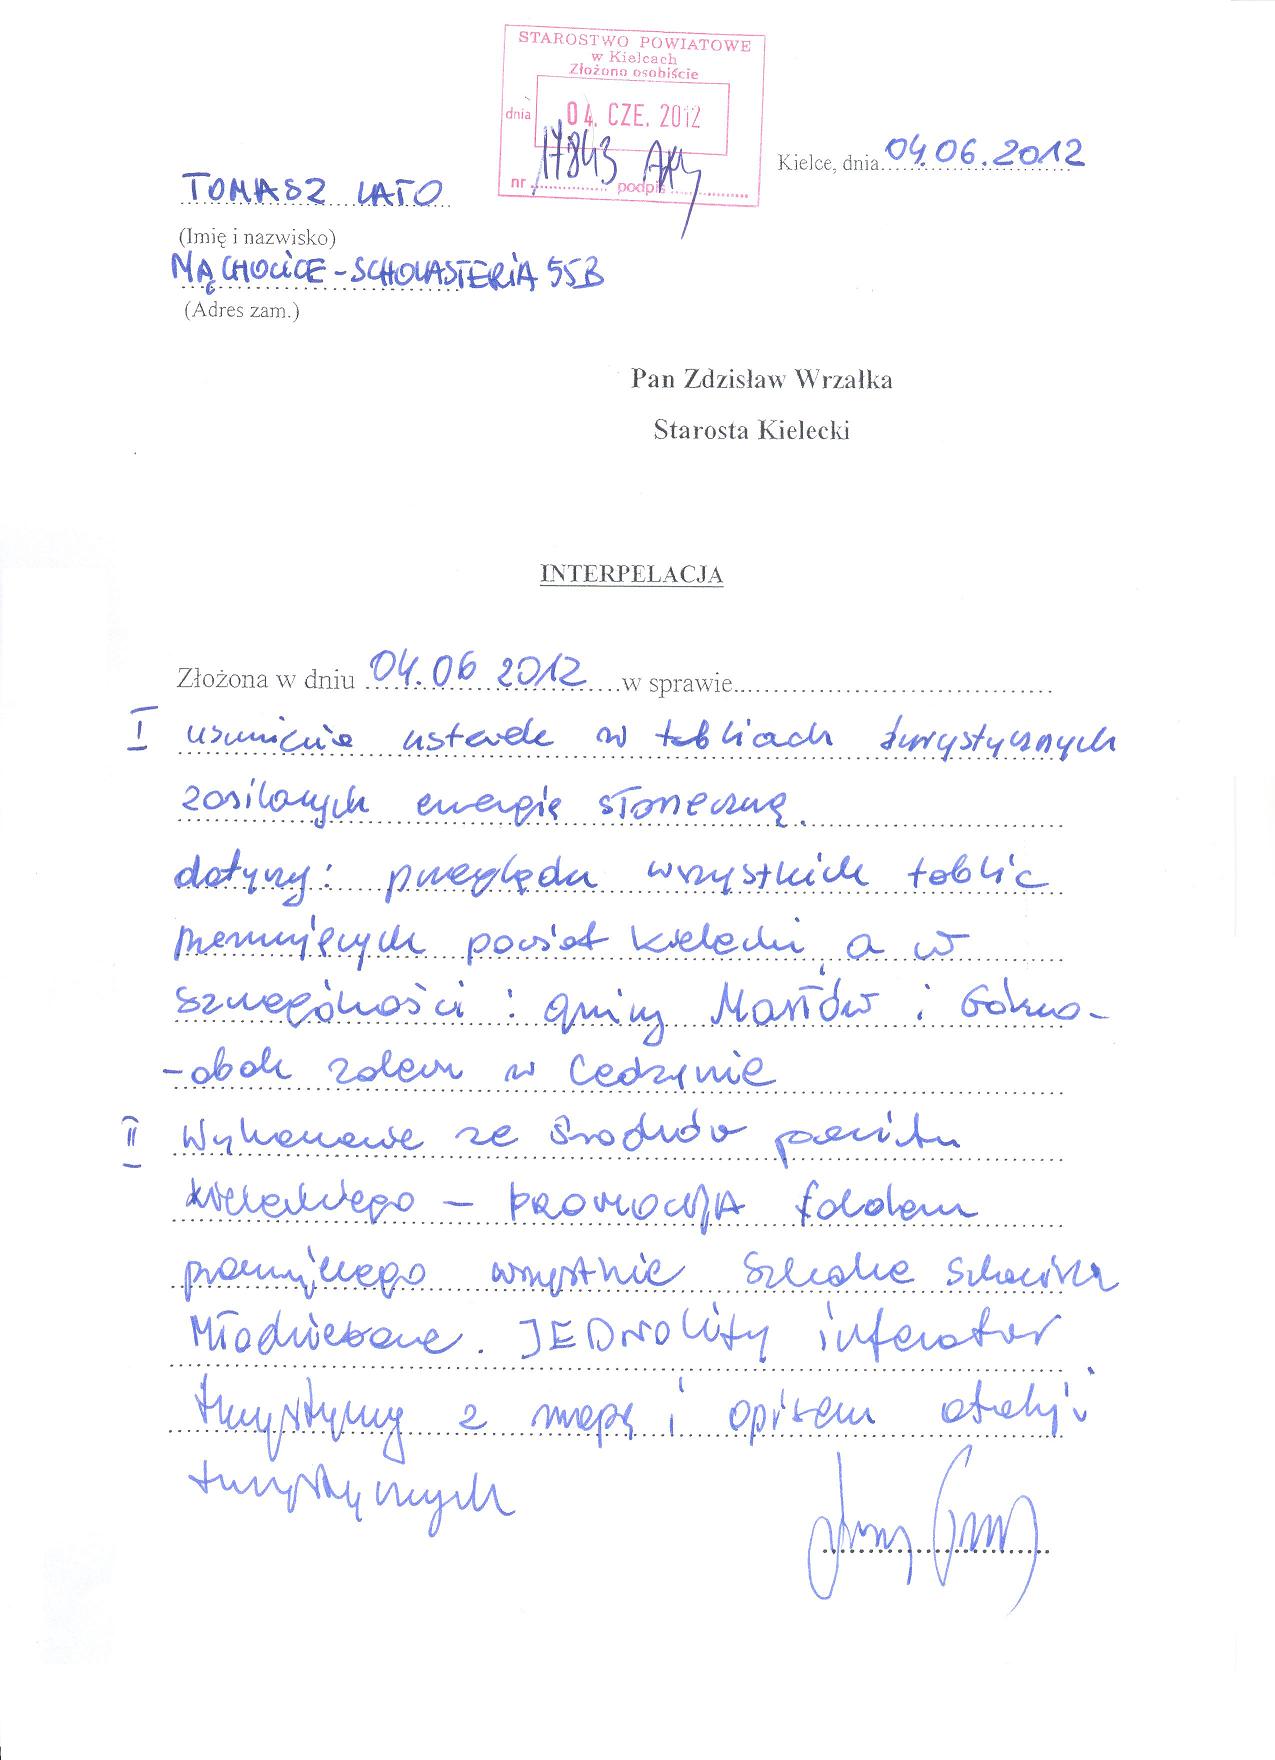 STAROSTWO POWIATOWE
w Kielcach
Złożono osobiście
dnia 04. CZE. 2012
nr 17843 podpis
Kielce, dnia 04.06.2012
TOMASZ LATO
(Imię i nazwisko)
MĄCHOCICE-SCHOLASTERIA 55B
(Adres zam.)
Pan Zdzisław Wrzałka
Starosta Kielecki
INTERPELACJA
Złożona w dniu 04.06 2012 w sprawie
I usunięcie usterek w tablicach turystycznych
zasilanych energią słoneczną.
dotyczy: przeglądu wszystkich tablic
promujących powiat kielecki, a w
szczególności : gminy Masłów i Górno-
-obok zalewu w Cedzynie
II Wykonanie ze środków powiatu
kieleckiego – PROMOCJA folderu
promującego wszystkie Szkolne Schroniska
Młodzieżowe. JEDNOLITY informator
turystyczny z mapą i opisem atrakcji
turystycznych